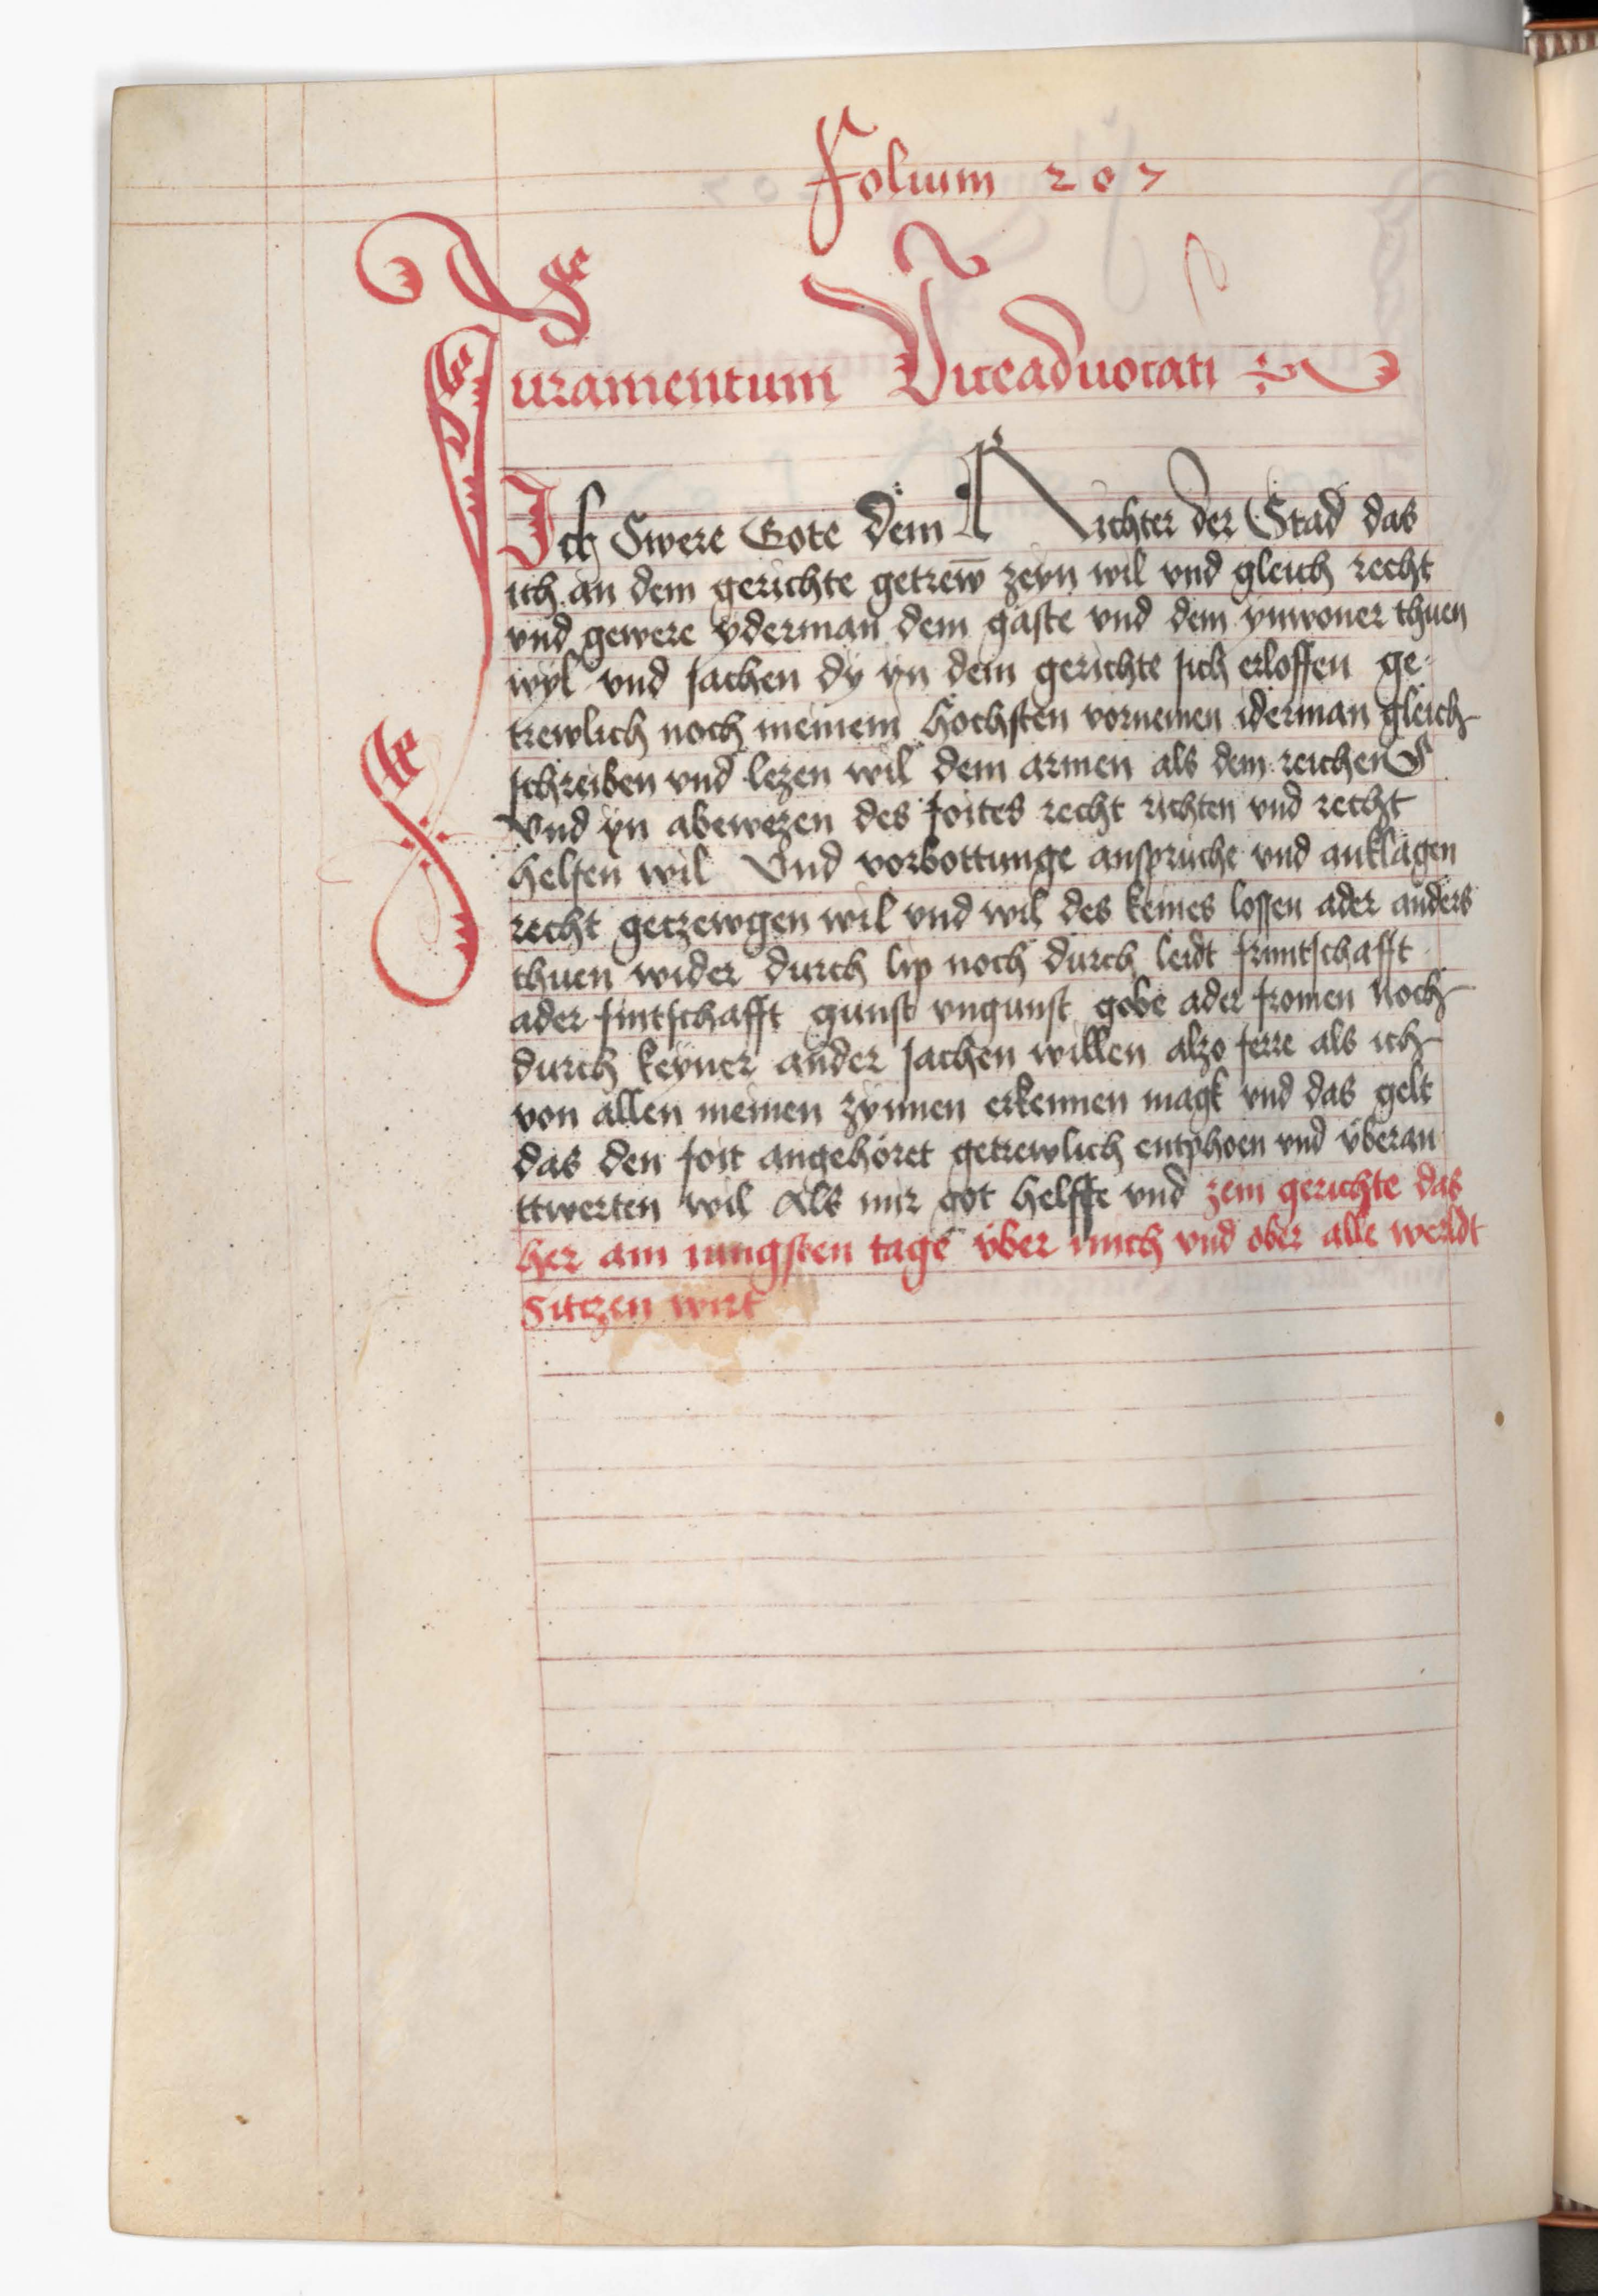 Folium 207
Juramentum Viceaduocati
Ich Swere Gote dem Richter der Stad das
ich an dem gerichte getrew̄ zeyn wil vnd gleich recht
vnd gewere yderman dem gaste vnd dem ynwoner thuen
wyl vnd sachen dy yn dem gerichte sich erloffen ge-
trewlich noch meinem hochsten vornemen iderman gleich
schreiben vnd lezen wil dem armen als dem reichen
Vnd yn abewezen des foites recht richten vnd recht
helfen wil Vnd vorbottunge anspruche vnd anklagen
recht getzewgen wil vnd wil des keines lossen ader anders
thuen wider durch lip noch durch leidt fruntschafft
ader fintschafft gunst vngunst gobe ader fromen noch
durch keyner ander sachen willen alzo ferre als ich
von allen meinen zynnen erkennen magk vnd das gelt
das den foit angehöret getrewlich entphoen vnd vberan
ttwerten wil Als mir got helffe vnd zein gerichte das
her am iungsten tage vber mich vnd ober alle werldt
Sitczen wirt